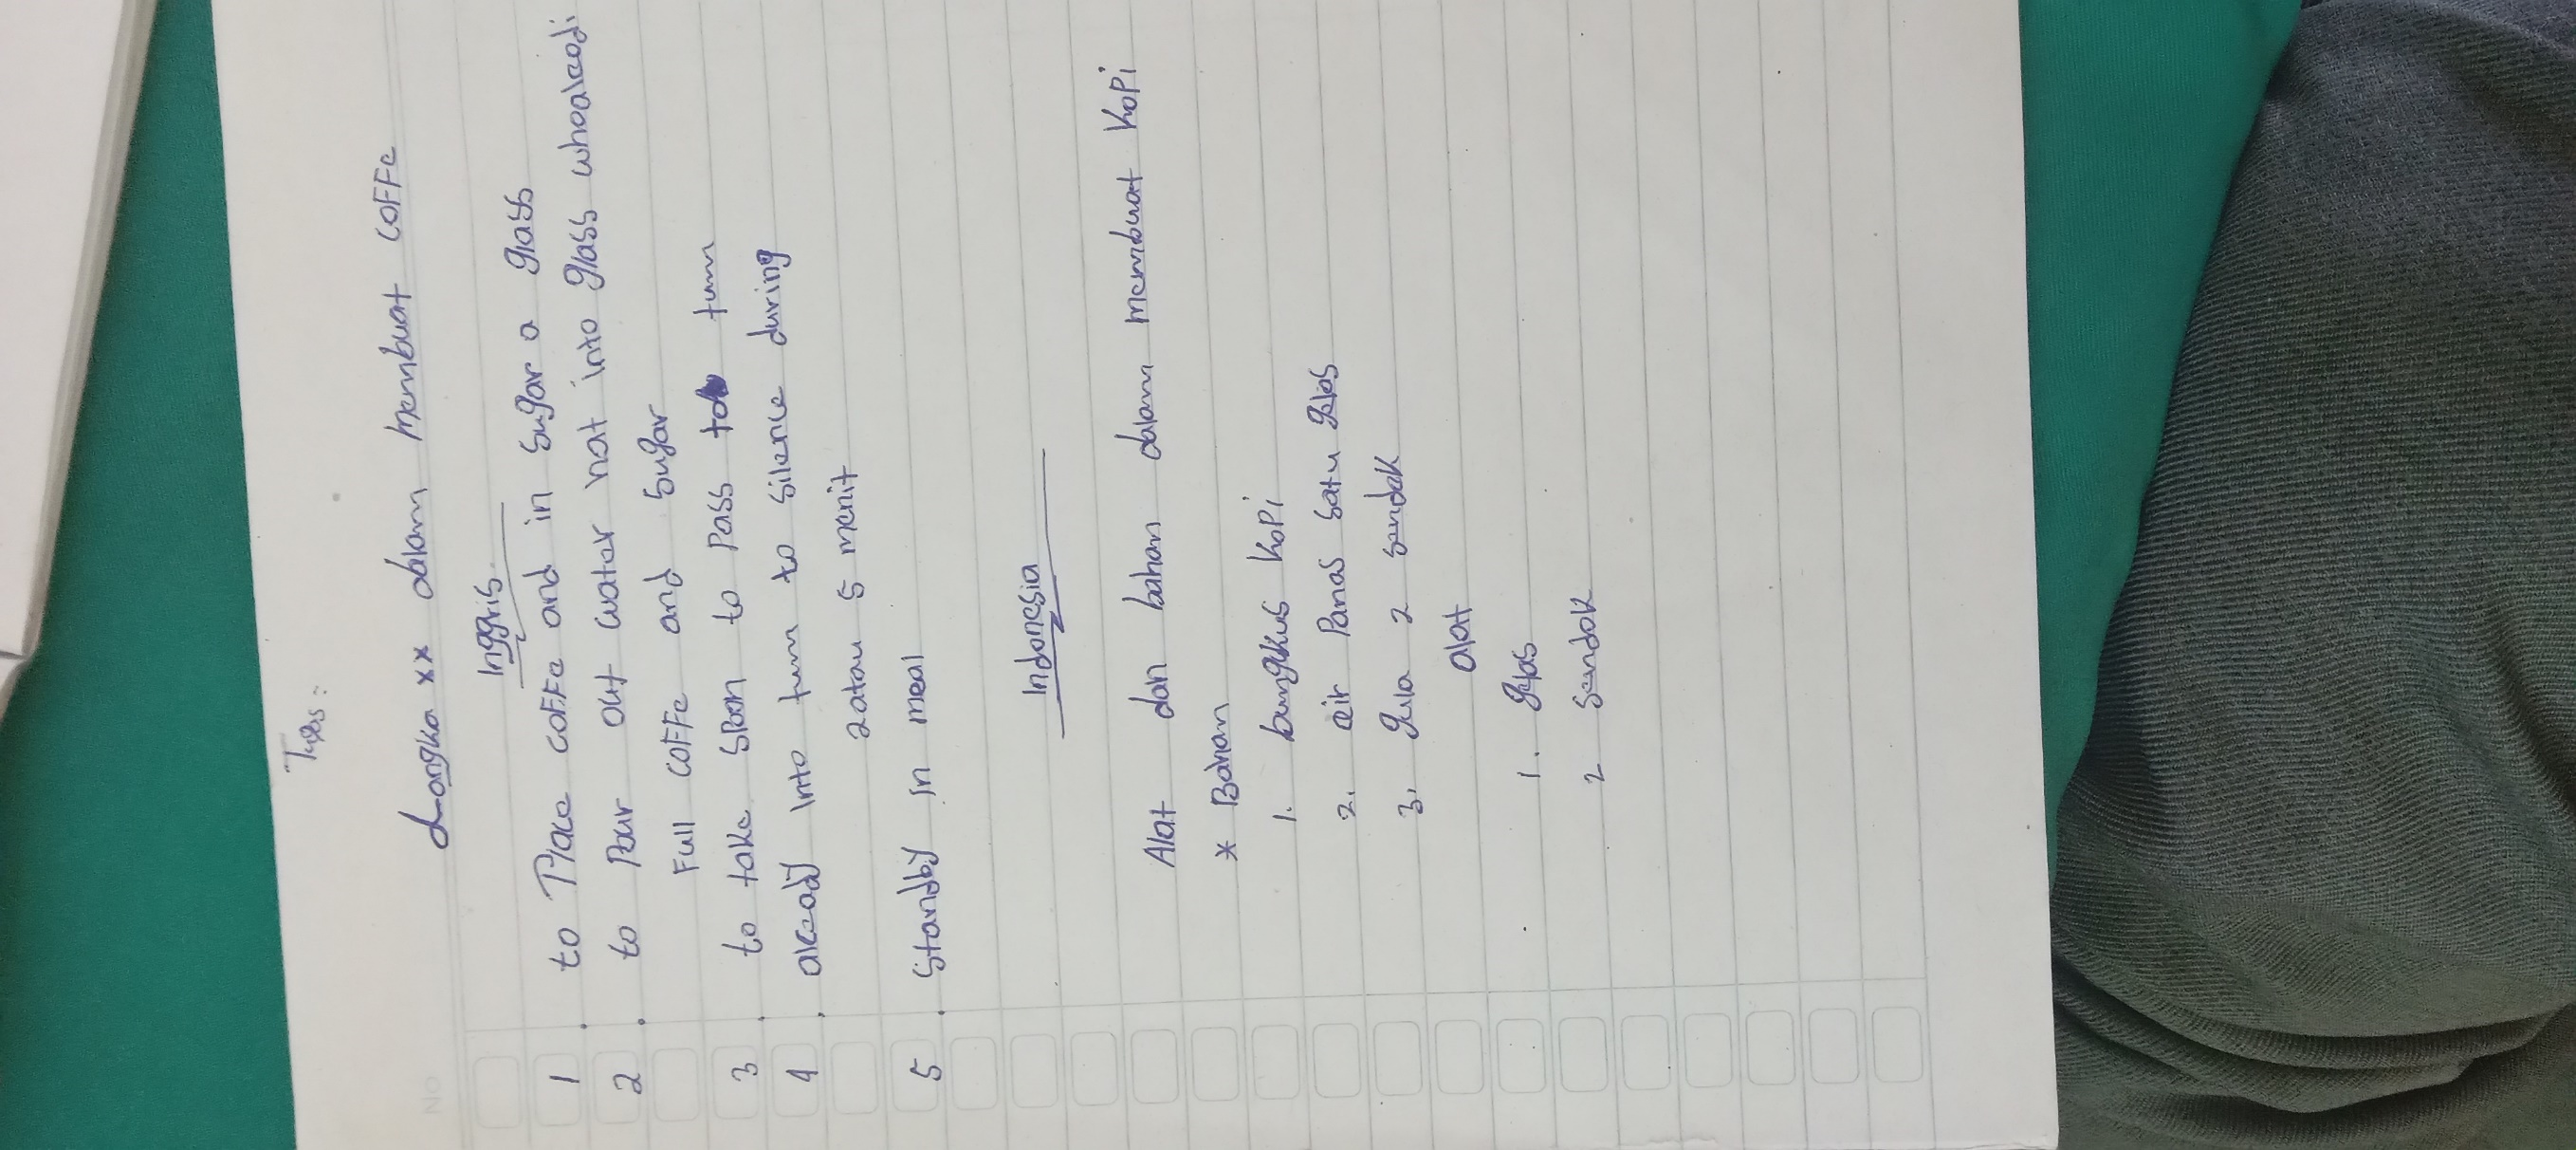 Tugas:
Langka xx dalam membuat coffe
Inggris
1. to Place coffe and in sugar a glass
2. to Pour out water hot into glass whoaleadi
Full coffe and sugar
3. to take spoon to Pass to turn
4. alceady into turn to silence during
2atau 5 menit
5. Standby in meal
Indonesia
Alat dan bahan dalam membuat kopi
* Bahan
1. bungkus kopi
2. air Panas satu gelas
3. gula 2 sendok
alat
1. gelas
2 Sendok
NO